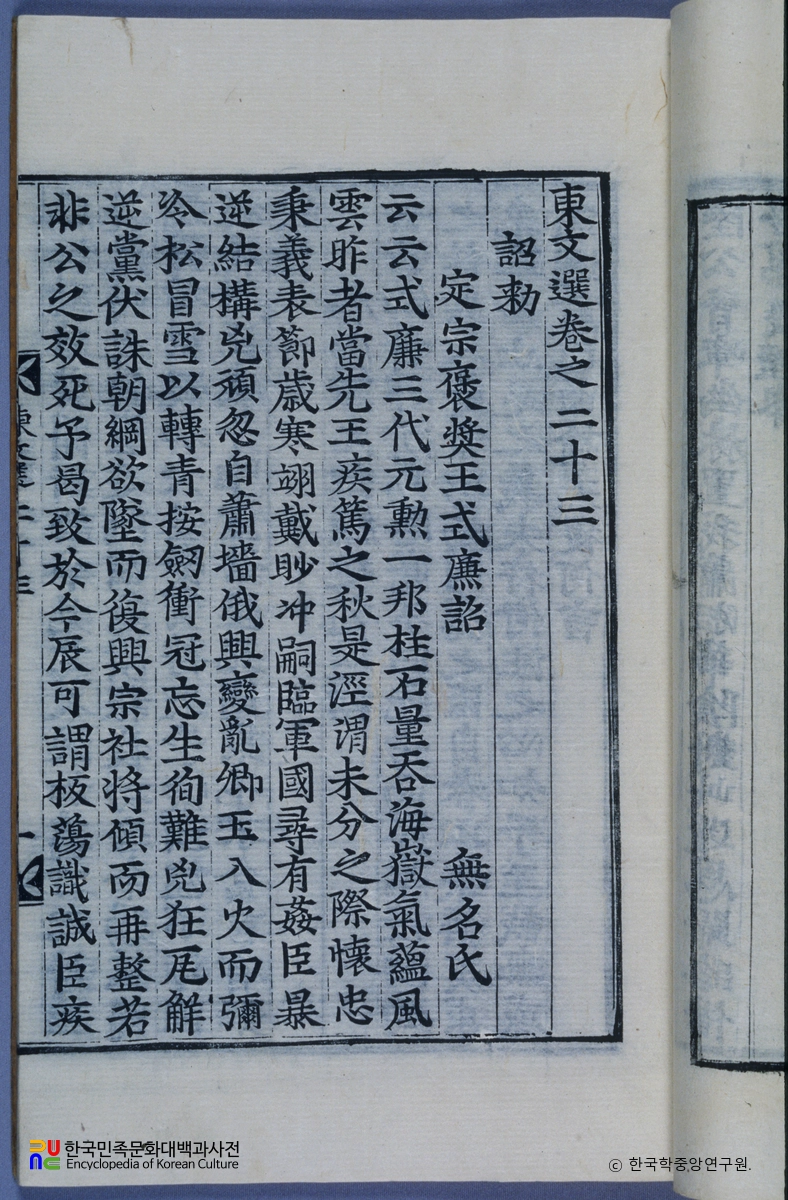 東文選卷之二十三
詔勅
定宗褒奬王式廉詔 無名氏
云云式廉三代元勲一邦柱石量吞海嶽氣蘊風
雲昨者當先王疾篤之秋是涇渭未分之際懷忠
秉義表節歲寒翊戴眇冲嗣臨軍國尋有姦臣暴
逆結構兇頑忽自蕭墻俄興變亂卿玉入火而彌
冷松冒雪以轉青按劒衝冠忘生徇難兇狂瓦解
逆黨伏誅朝綱欲墜而復興宗社將傾而再整若
非公之效死予曷致於今辰可謂板蕩識誠臣疾
東文選二十三
一
한국민족문화대백과사전
Encyclopedia of Korean Culture
© 한국학중앙연구원.